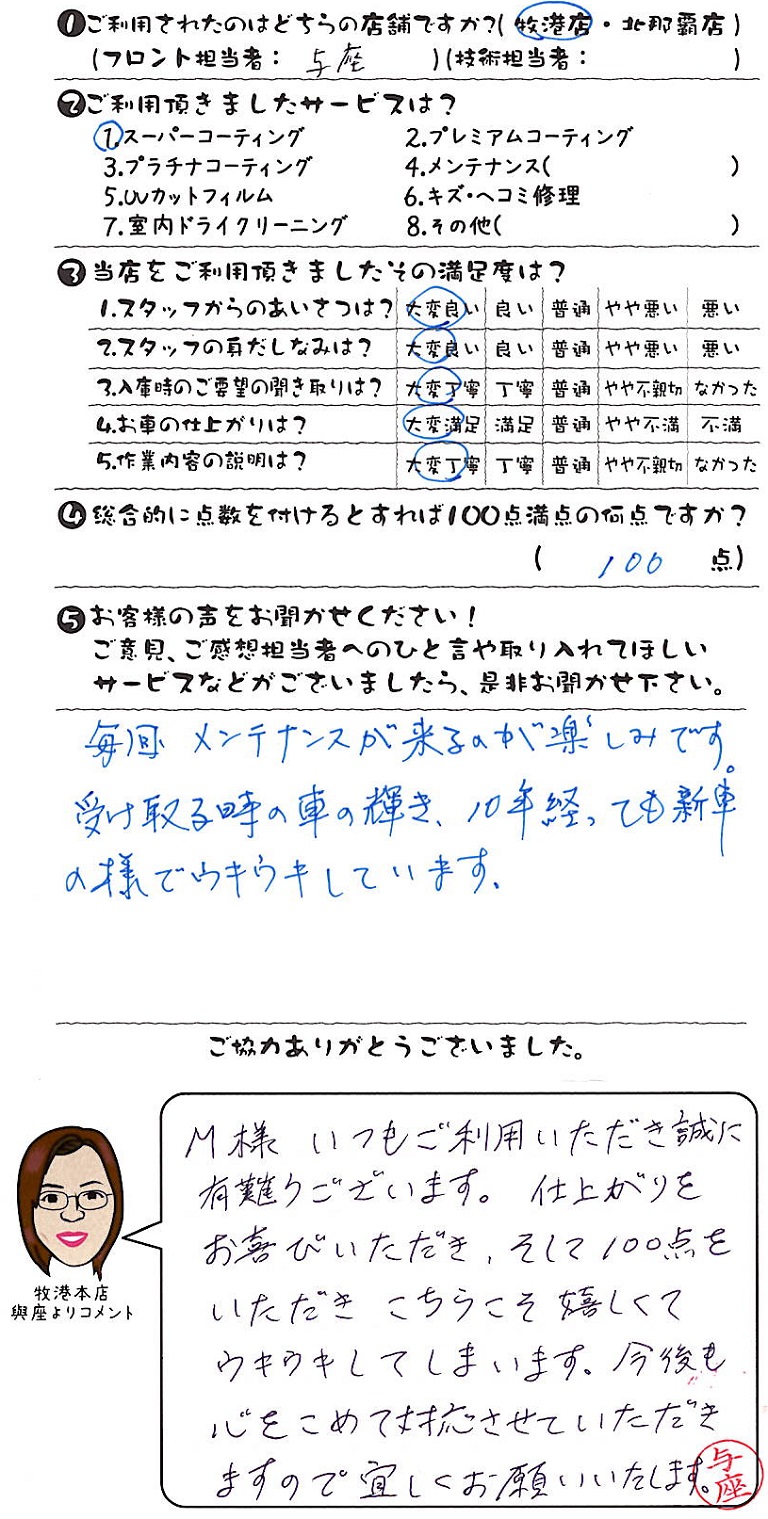 ❶ご利用されたのはどちらの店舗ですか?(牧港店・北那覇店)
(フロント担当者: 与座 )(技術担当者: )
❷ご利用頂きましたサービスは?
1.スーパーコーティング 2.プレミアムコーティング
3.プラチナコーティング 4.メンテナンス( )
5.UVカットフィルム 6.キズ・ヘコミ修理
7.室内ドライクリーニング 8.その他( )
❸当店をご利用頂きましたその満足度は?
1.スタッフからのあいさつは? 大変良い 良い 普通 やや悪い 悪い
2.スタッフの身だしなみは? 大変良い 良い 普通 やや悪い 悪い
3.入庫時のご要望の聞き取りは? 大変丁寧 丁寧 普通 やや不親切 なかった
4.お車の仕上がりは? 大変満足 満足 普通 やや不満 不満
5.作業内容の説明は? 大変丁寧 丁寧 普通 やや不親切 なかった
❹総合的に点数を付けるとすれば100点満点の何点ですか?
( 100 点)
❺お客様の声をお聞かせください!
ご意見、ご感想担当者へのひと言や取り入れてほしい
サービスなどがございましたら、是非お聞かせ下さい。
毎回 メンテナンスが来るのが楽しみです。
受け取る時の車の輝き、10年経っても新車
の様でウキウキしています。
ご協力ありがとうございました。
M様 いつもご利用いただき誠に
有難うございます。仕上がりを
お喜びいただき、そして100点を
いただき こちらこそ嬉しくて
ウキウキしてしまいます。今後も
心をこめて対応させていただき
ますので宜しくお願いいたします。
与座
牧港本店
與座よりコメント